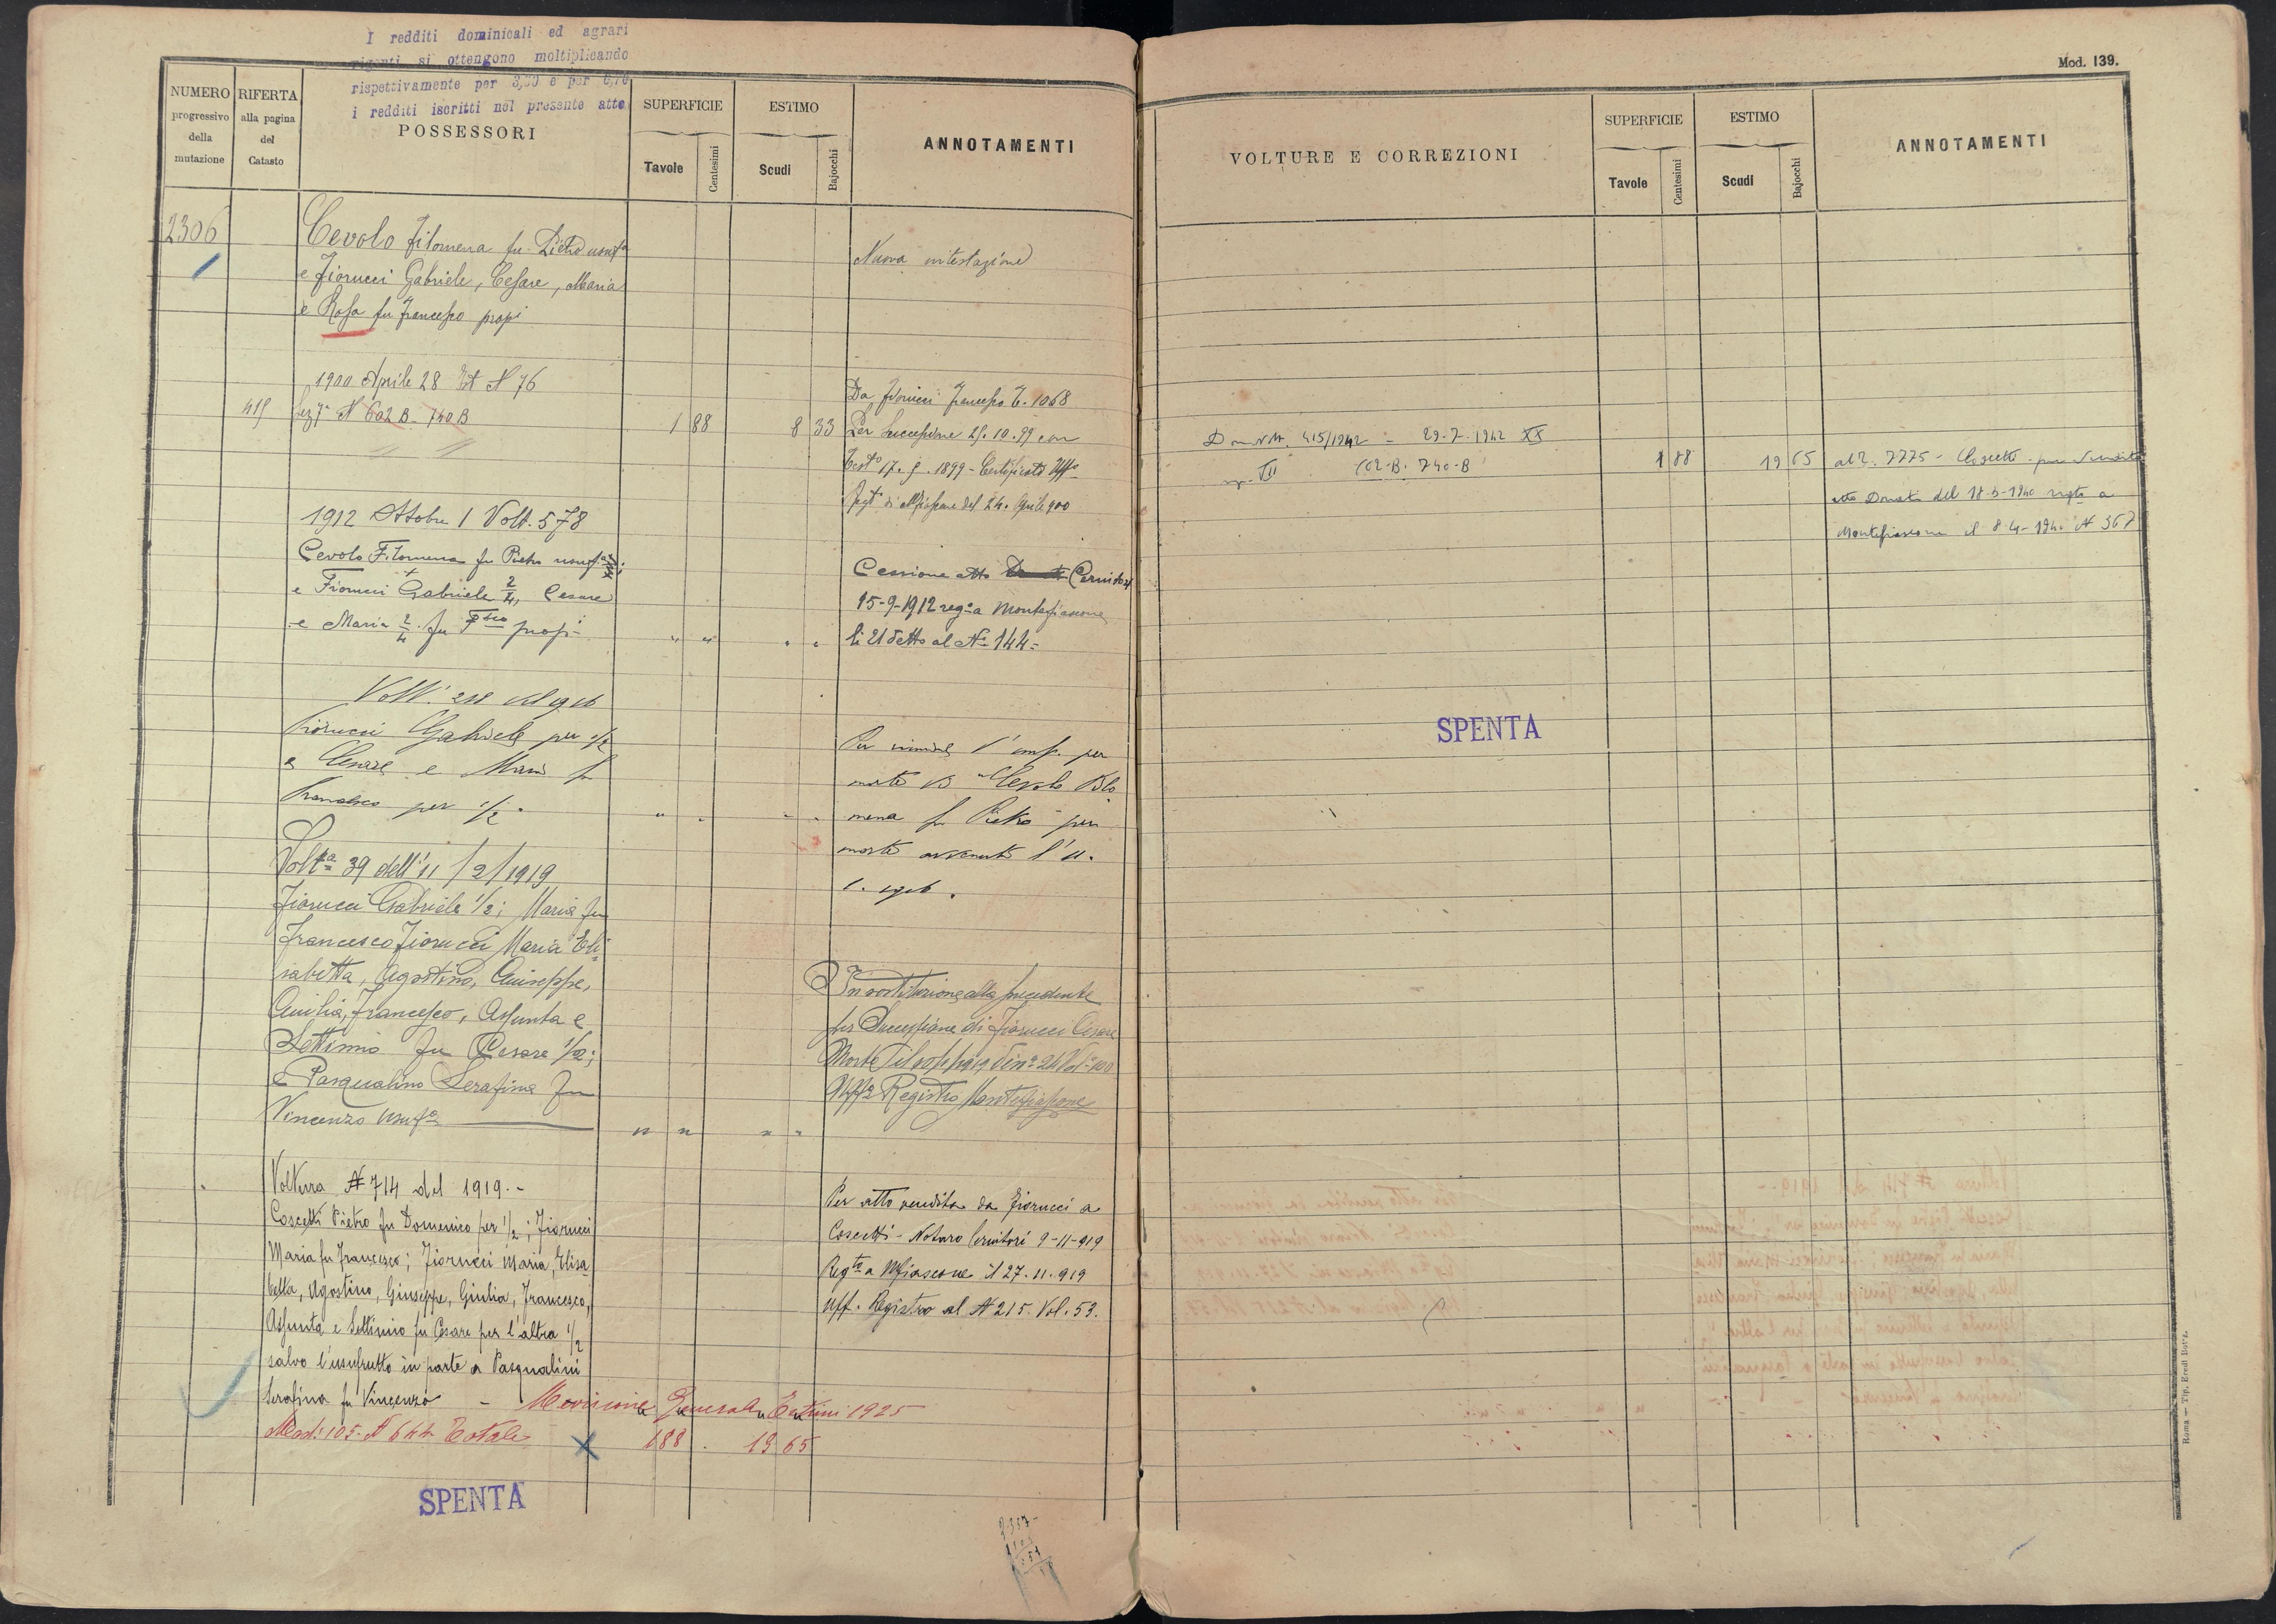 I redditi dominicali ed agrari
vigenti si ottengono moltiplicando
rispettivamente per 3,50 e per 6,76
i redditi iscritti nel presente atto
NUMERO
progressivo
della
mutazione
RIFERTA
alla pagina
del
Catasto
POSSESSORI
SUPERFICIE
Tavole
Centesimi
ESTIMO
Scudi
Bajocchi
ANNOTAMENTI
2306
Cevolo Filomena fu Pietro usufa
e Fiorucci Gabriele, Cesare, Maria
e Rosa fu Francesco propi
Nuova intestazione
1900 Aprile 28 N 76
415
N 602 B - 740 B
1 88
8 33
Da Fiorucci Francesco 1068
Per Successione 25.10.99 con
Testo 17. 1899 - Certificato Uffo
Regto di Mfiascone del 24. Aprile 900
1912 Ottobre 1 Volt. 578
Cevolo Filomena fu Pietro usuf.
e Fiorucci Gabriele 2/4, Cesare
e Maria 2/4 fu Fsco propi -
" "
" "
Cessione atto Cernitori
15-9-1912 rega a Montefiascone
li 21 detto al No 144 =
Volt. del 1916
Fiorucci Gabriele per 1/2
e Cesare e Maria fu
Francesco per 1/2.
" "
" "
per
morte di Cevolo Filo
mena fu Pietro per
morte avvenuta l'11.
1916.
Volta 39 dell'11/2/1919
Fiorucci Gabriele 1/2; Maria fu
Francesco Fiorucci Maria Eli=
sabetta, Agostino, Giuseppe,
Giulia, Francesco, Assunta e
Settimio fu Cesare 1/2;
e Pasqualino Serafina fu
Vincenzo usufa
" "
" "
In sostituzione alla precedente
per Successione di Fiorucci Cesare
Morte
Uffo Registro Montefiascone
Voltura N 714 del 1919.-
Coscetti Pietro fu Domenico per 1/2; Fiorucci
Maria fu Francesco; Fiorucci Maria, Elisa
betta, Agostino, Giuseppe, Giulia, Francesco,
Assunta e Settimio fu Cesare per l'altra 1/2
salvo l'usufrutto in parte a Pasqualini
Serafina fu Vincenzo -
Per atto vendita da Fiorucci a
Coscetti - Notaro Cernitori 9-11-919
Regto a Mfiascone il 27.11.919
Uff. Registro al N 215. Vol. 53.
Revisione Generale Estimi 1925
Mod. 105. N 644 Totale
188
19 65
SPENTA
Mod. 139.
VOLTURE E CORREZIONI
SUPERFICIE
Tavole
Centesimi
ESTIMO
Scudi
Bajocchi
ANNOTAMENTI
415/1942 - 29.7.1942 XX
602-B. 740-B
1 88
19 65
al 7775 - Coscetti per vendita
atto Donati del 18-3-1940 regto a
Montefiascone il 8-4-1940 N 367
SPENTA
Roma — Tip. Eredi Botta.